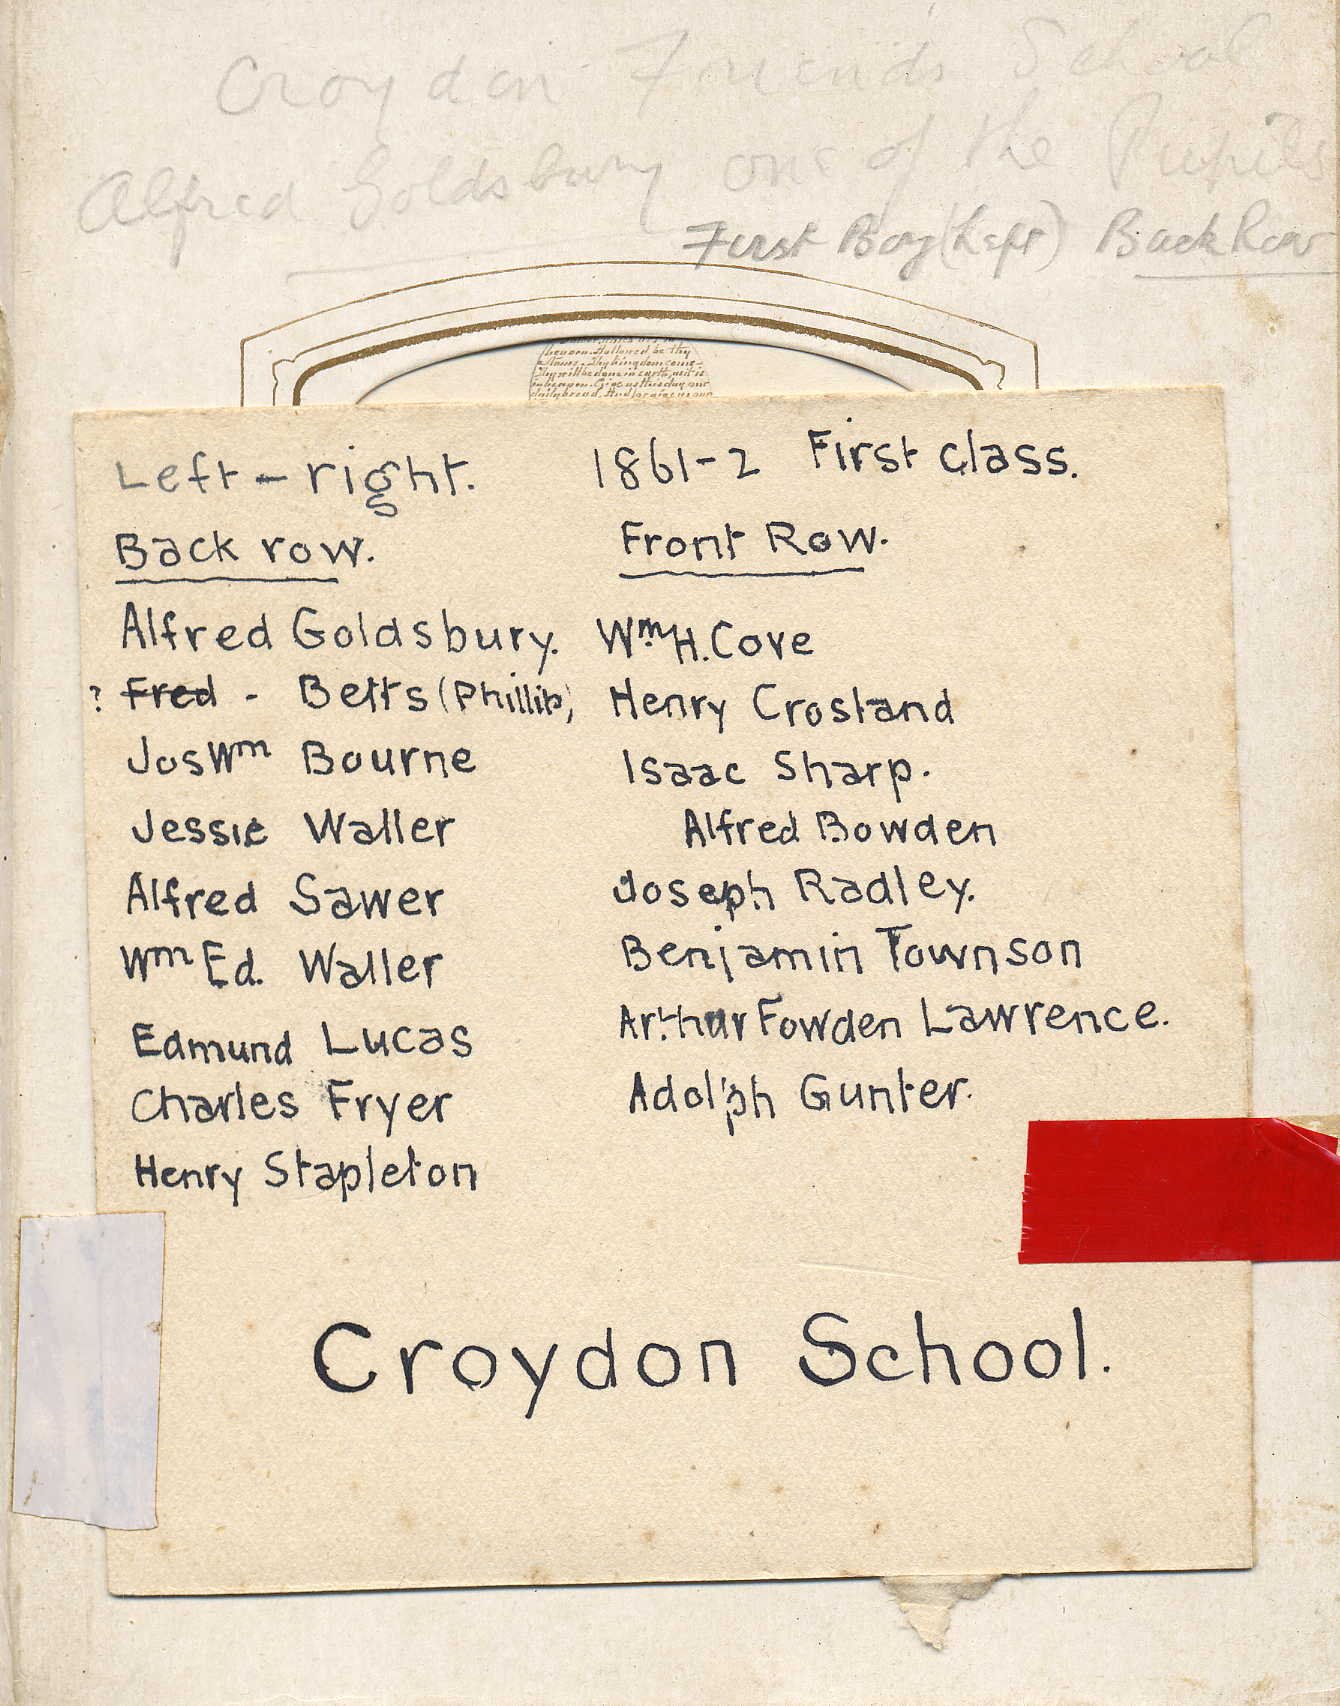 Croydon Friends School
Alfred Goldsbury one of the Pupils
First Boy (Left) Back Row
heaven. Hallowed be thy
Name. Thy kingdom come
Thy will be done in earth, as it is
in heaven. Give us this day our
daily bread. And forgive us our
Left - right.
Back row.
Alfred Goldsbury.
? Fred - Betts (Phillip)
Jos Wm Bourne
Jessie Waller
Alfred Sawer
Wm Ed. Waller
Edmund Lucas
Charles Fryer
Henry Stapleton
1861-2 First class.
Front Row.
Wm H. Cove
Henry Crosland
Isaac Sharp.
Alfred Bowden
Joseph Radley.
Benjamin Townson
Arthur Fowden Lawrence.
Adolph Gunter.
Croydon School.